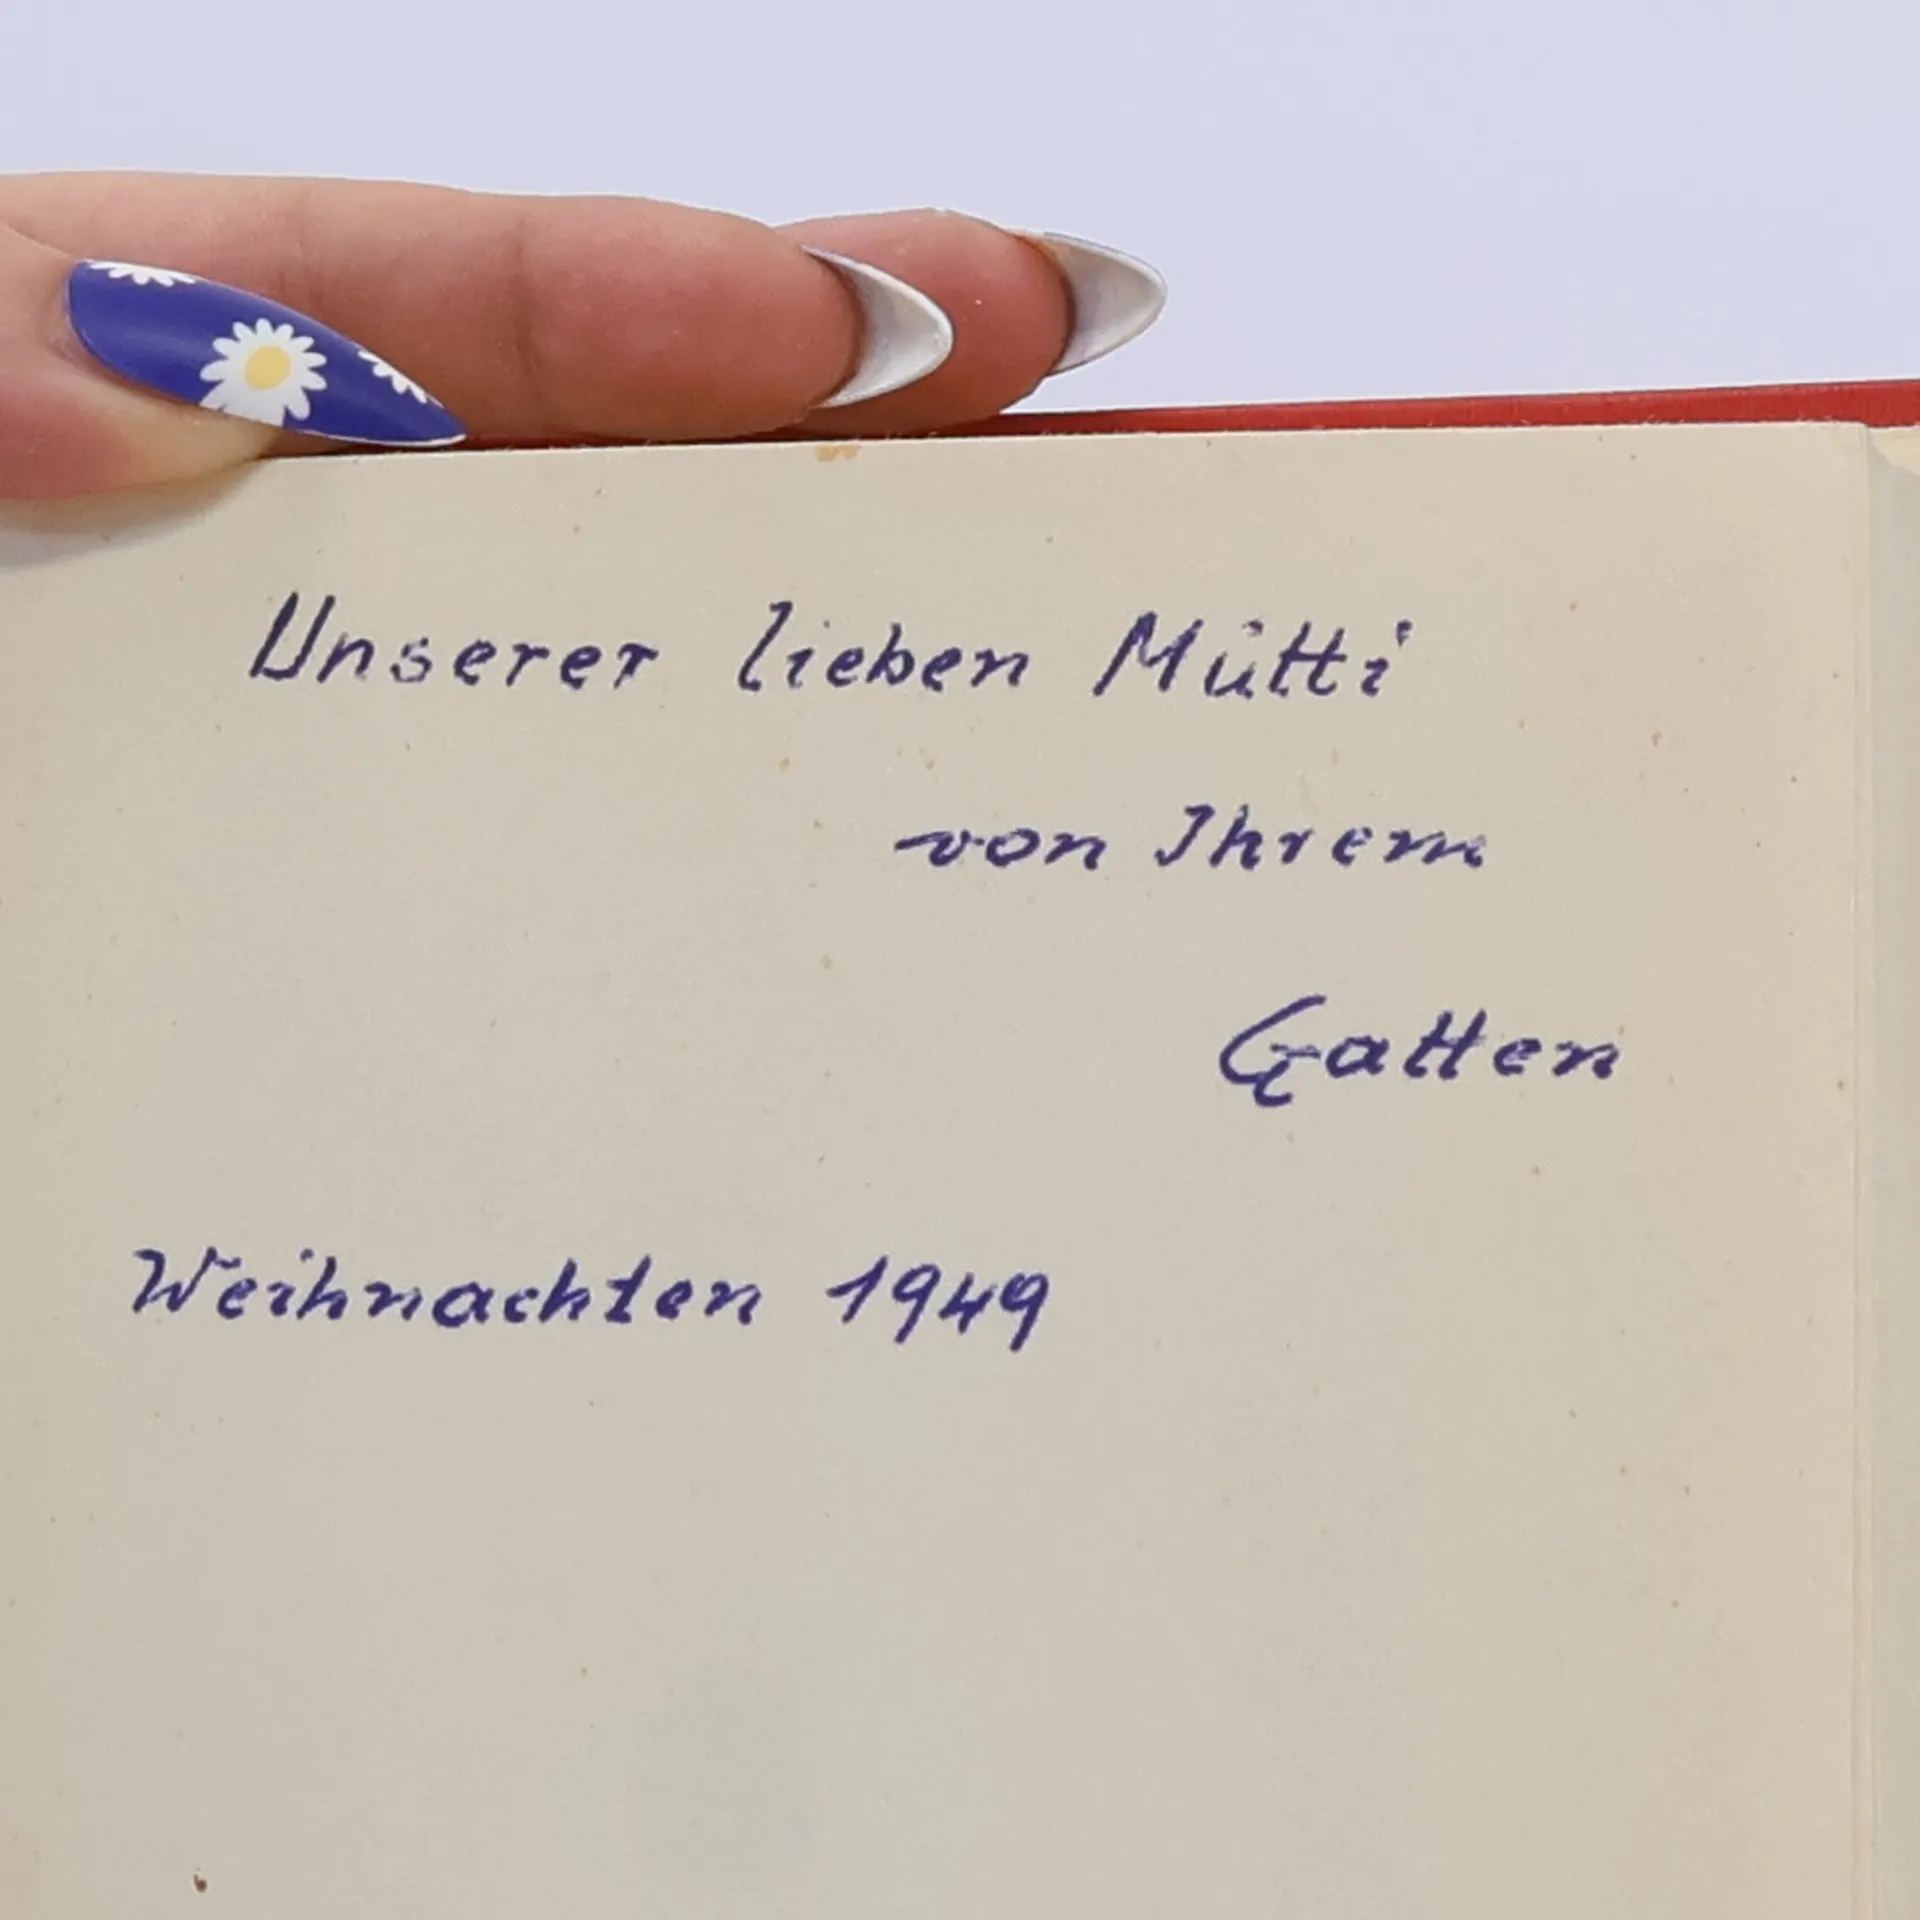 Unserer lieben Mütti
von Ihrem
Gatten
Weihnachten 1949